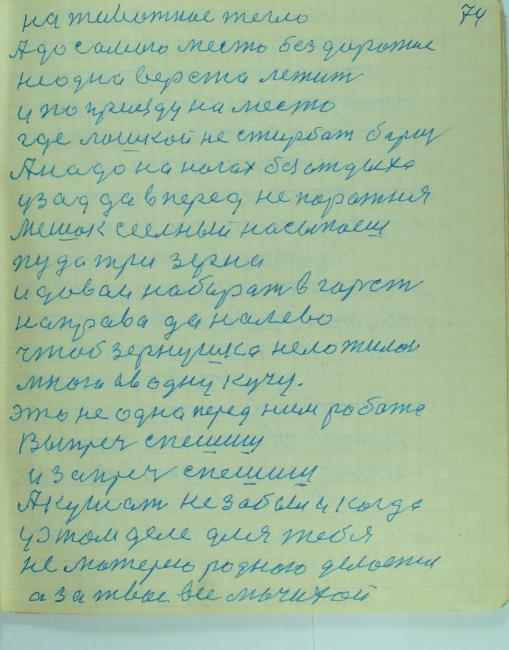 74
на животное тегло
А до самого месть без дорожие
не одна верста лежит
и по приезду на место
где лошкой не стирбат барщ
А надо на ногах без отдыха
узад да в перед не порожня
мешок сеелный насыпаеш
пуда три зерна
и довай набират в горст
направа да налево
чтоб зернушка неложилос
много в одну кучу.
это не одна перед ним робота
Выпреч спешиш
и запреч спешиш
А кушат не забыл и когда
у этом деле для тебя
не матерею родною делоетца
а за твое все мычихой